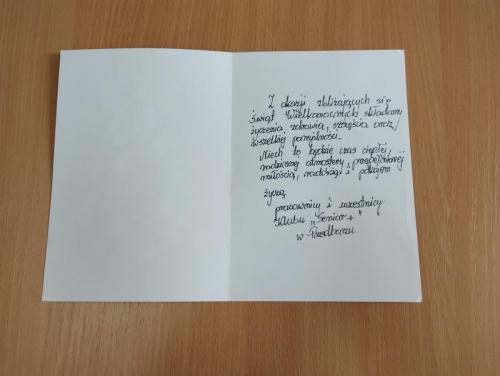 Z okazji zbliżających się
Świąt Wielkanocnych składamy
życzenia zdrowia, szczęścia oraz
wszelkiej pomyślności.
Niech to będzie czas ciepłej,
rodzinnej atmosfery, przepełnionej
miłością, radością i pokojem
życzą,
pracownicy i uczestnicy
Klubu „Senior+"
w Przedborzu